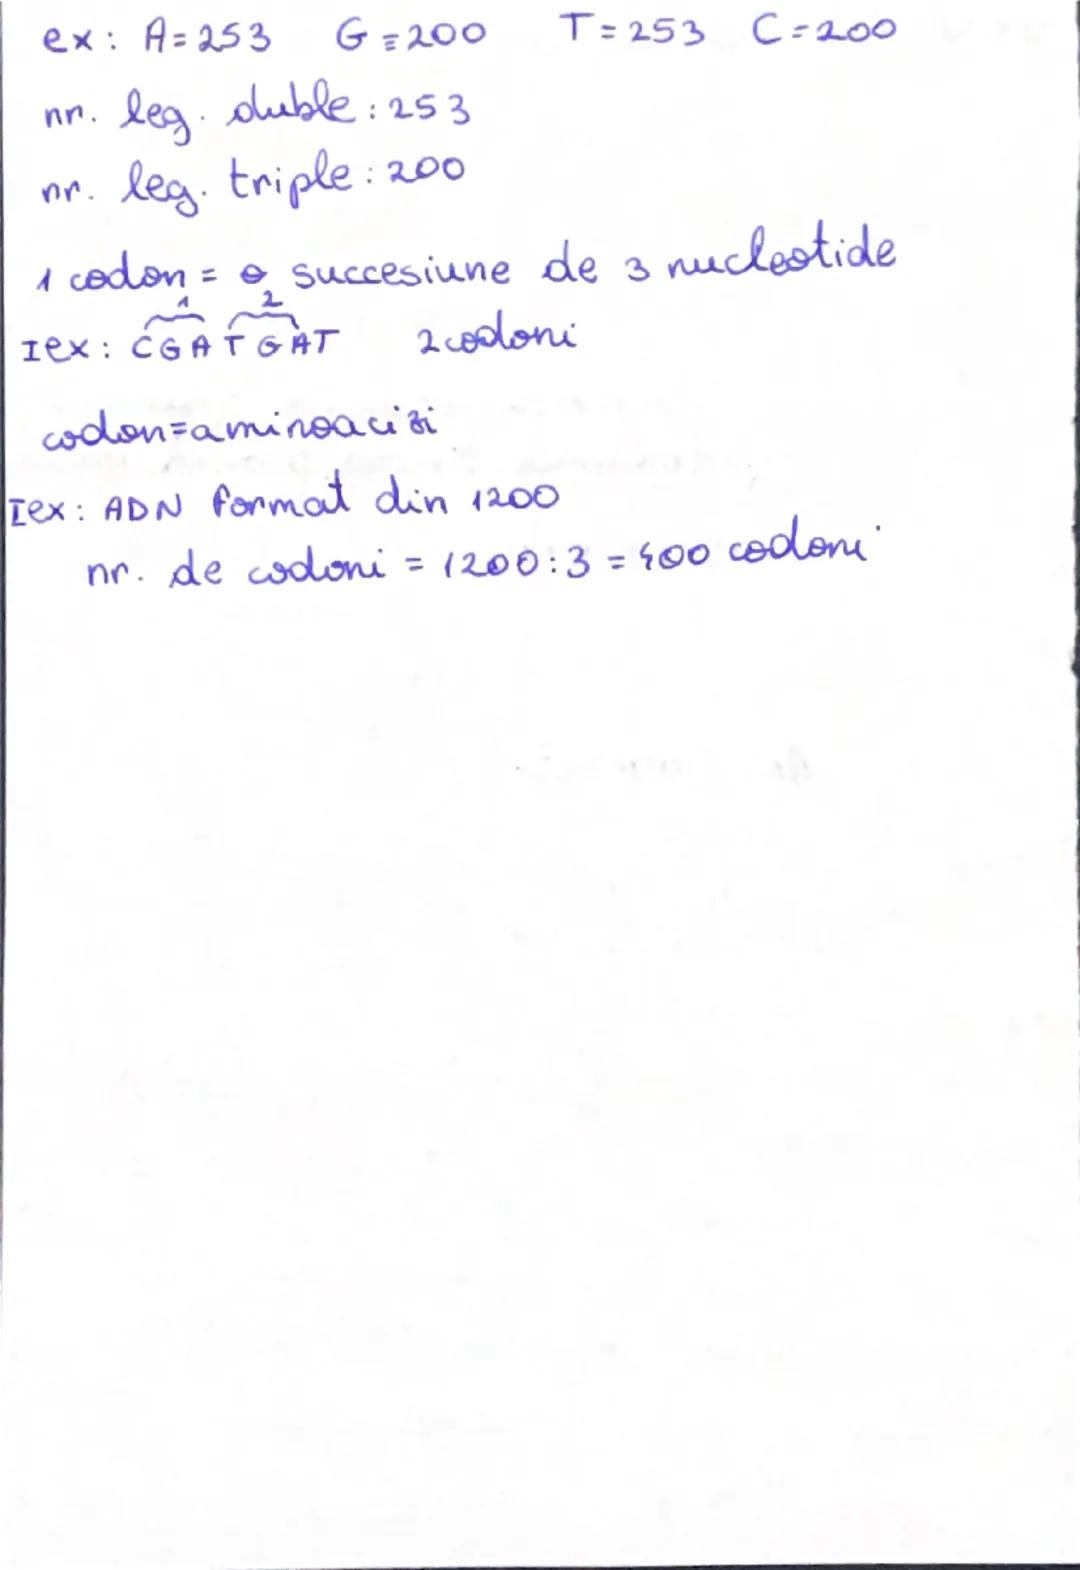 ex: A=253 G=200 T=253 C=200
nr. leg. duble: 253
nr. leg. triple: 200
1 codon = o succesiune de 3 nucleotide
1 2
Iex: CGATGAT 2codoni
codon=aminoacizi
Iex: ADN format din 1200
nr. de codoni = 1200:3=400 codoni